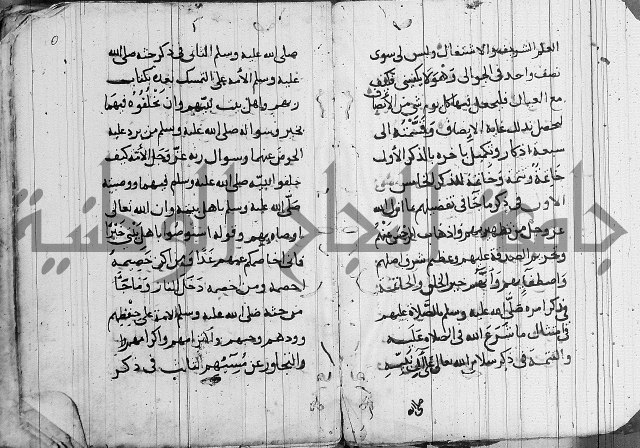 العلم الشريف والاشتغال وليس لي سوى
نصف واحد في الجوالي وهو لا يكفي فكيف
مع العيال فلم يحصل
ليحصل بذلك غاية الإنصاف وقسمته الى
سبعة اذكار وتكميل باخره بالذكر الأول
خاتمة وتتمة وخاتمة للذكر الخامس
الاول في ذكر ما جا في تفضيلهم بما انزل الله
عز وجل من تطهيرهم واذهاب الرجس عنهم
وتحريم الصدقة عليهم وعظيم شرف اصلهم
واصطفايهم وانهم خير الخلق
في ذكر امره صلى الله عليه وسلم بالصلاة عليهم
في امتثال ما شرع الله في الصلاة عليه
والتتمة في ذكر سلام الله تعالى على
صلى الله عليه وسلم الثاني في ذكر حثه صلى الله
عليه وسلم الأمة على التمسك بعده بكتاب
ربهم واهل بيت نبيهم وان يخلفوه فيهما
بخير وسواله صلى الله عليه وسلم من يرد عليه
الحوض عنهما وسوال ربه عز وجل الأمة كيف
خلفوا نبيه صلى الله عليه وسلم فيهما ووصيته
صلى الله عليه وسلم باهل بيته وان الله تعالى
اوصاه بهم وقوله استوصوا باهل بيتي خيرا
فاني اخاصمكم عنهم غدا ومن اكن خصيمه
اخصمه ومن اخصمه دخل النار وما جا
من حثه صلى الله عليه وسلم الامة على حفظهم
وودهم وحبهم واحترامهم واكرامهم
والتجاوز عن مسيئهم الثالث في ذكر
جامعة النجاح الوطنية